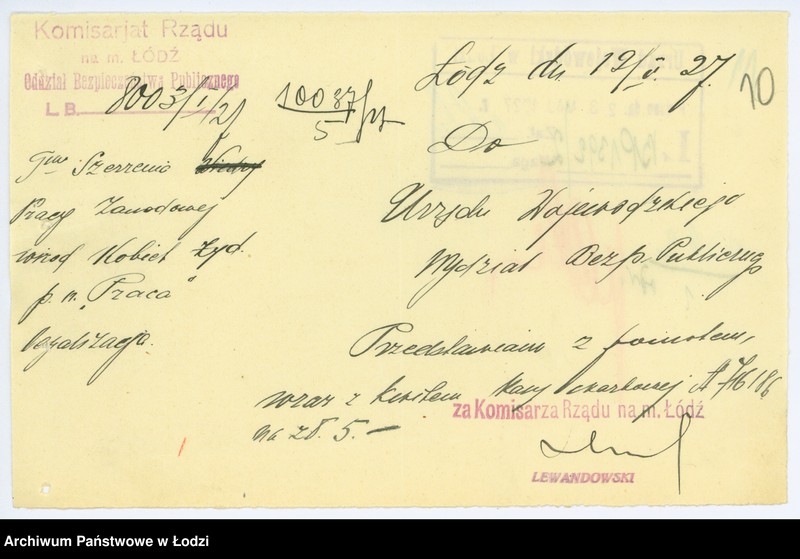 Komisarjat Rządu
na m. ŁÓDŹ
Oddział Bezpieczeństwa Publicznego
L.B. 8003/I/27
10037
5
Łódź dn. 19/V. 27.
10
Do
Urzędu Wojewódzkiego
Wydział Bezp. Publiczneg
Tow Szerzenia
Pracy Zawodowej
wśród Kobiet Żyd.
p. n. „Praca"
Legalizacja.
Przedstawiam z
wraz z kwitem Kasy Skarbowej №
na zł. 5.—
za Komisarza Rządu na m. Łódź
LEWANDOWSKI
Archiwum Państwowe w Łodzi